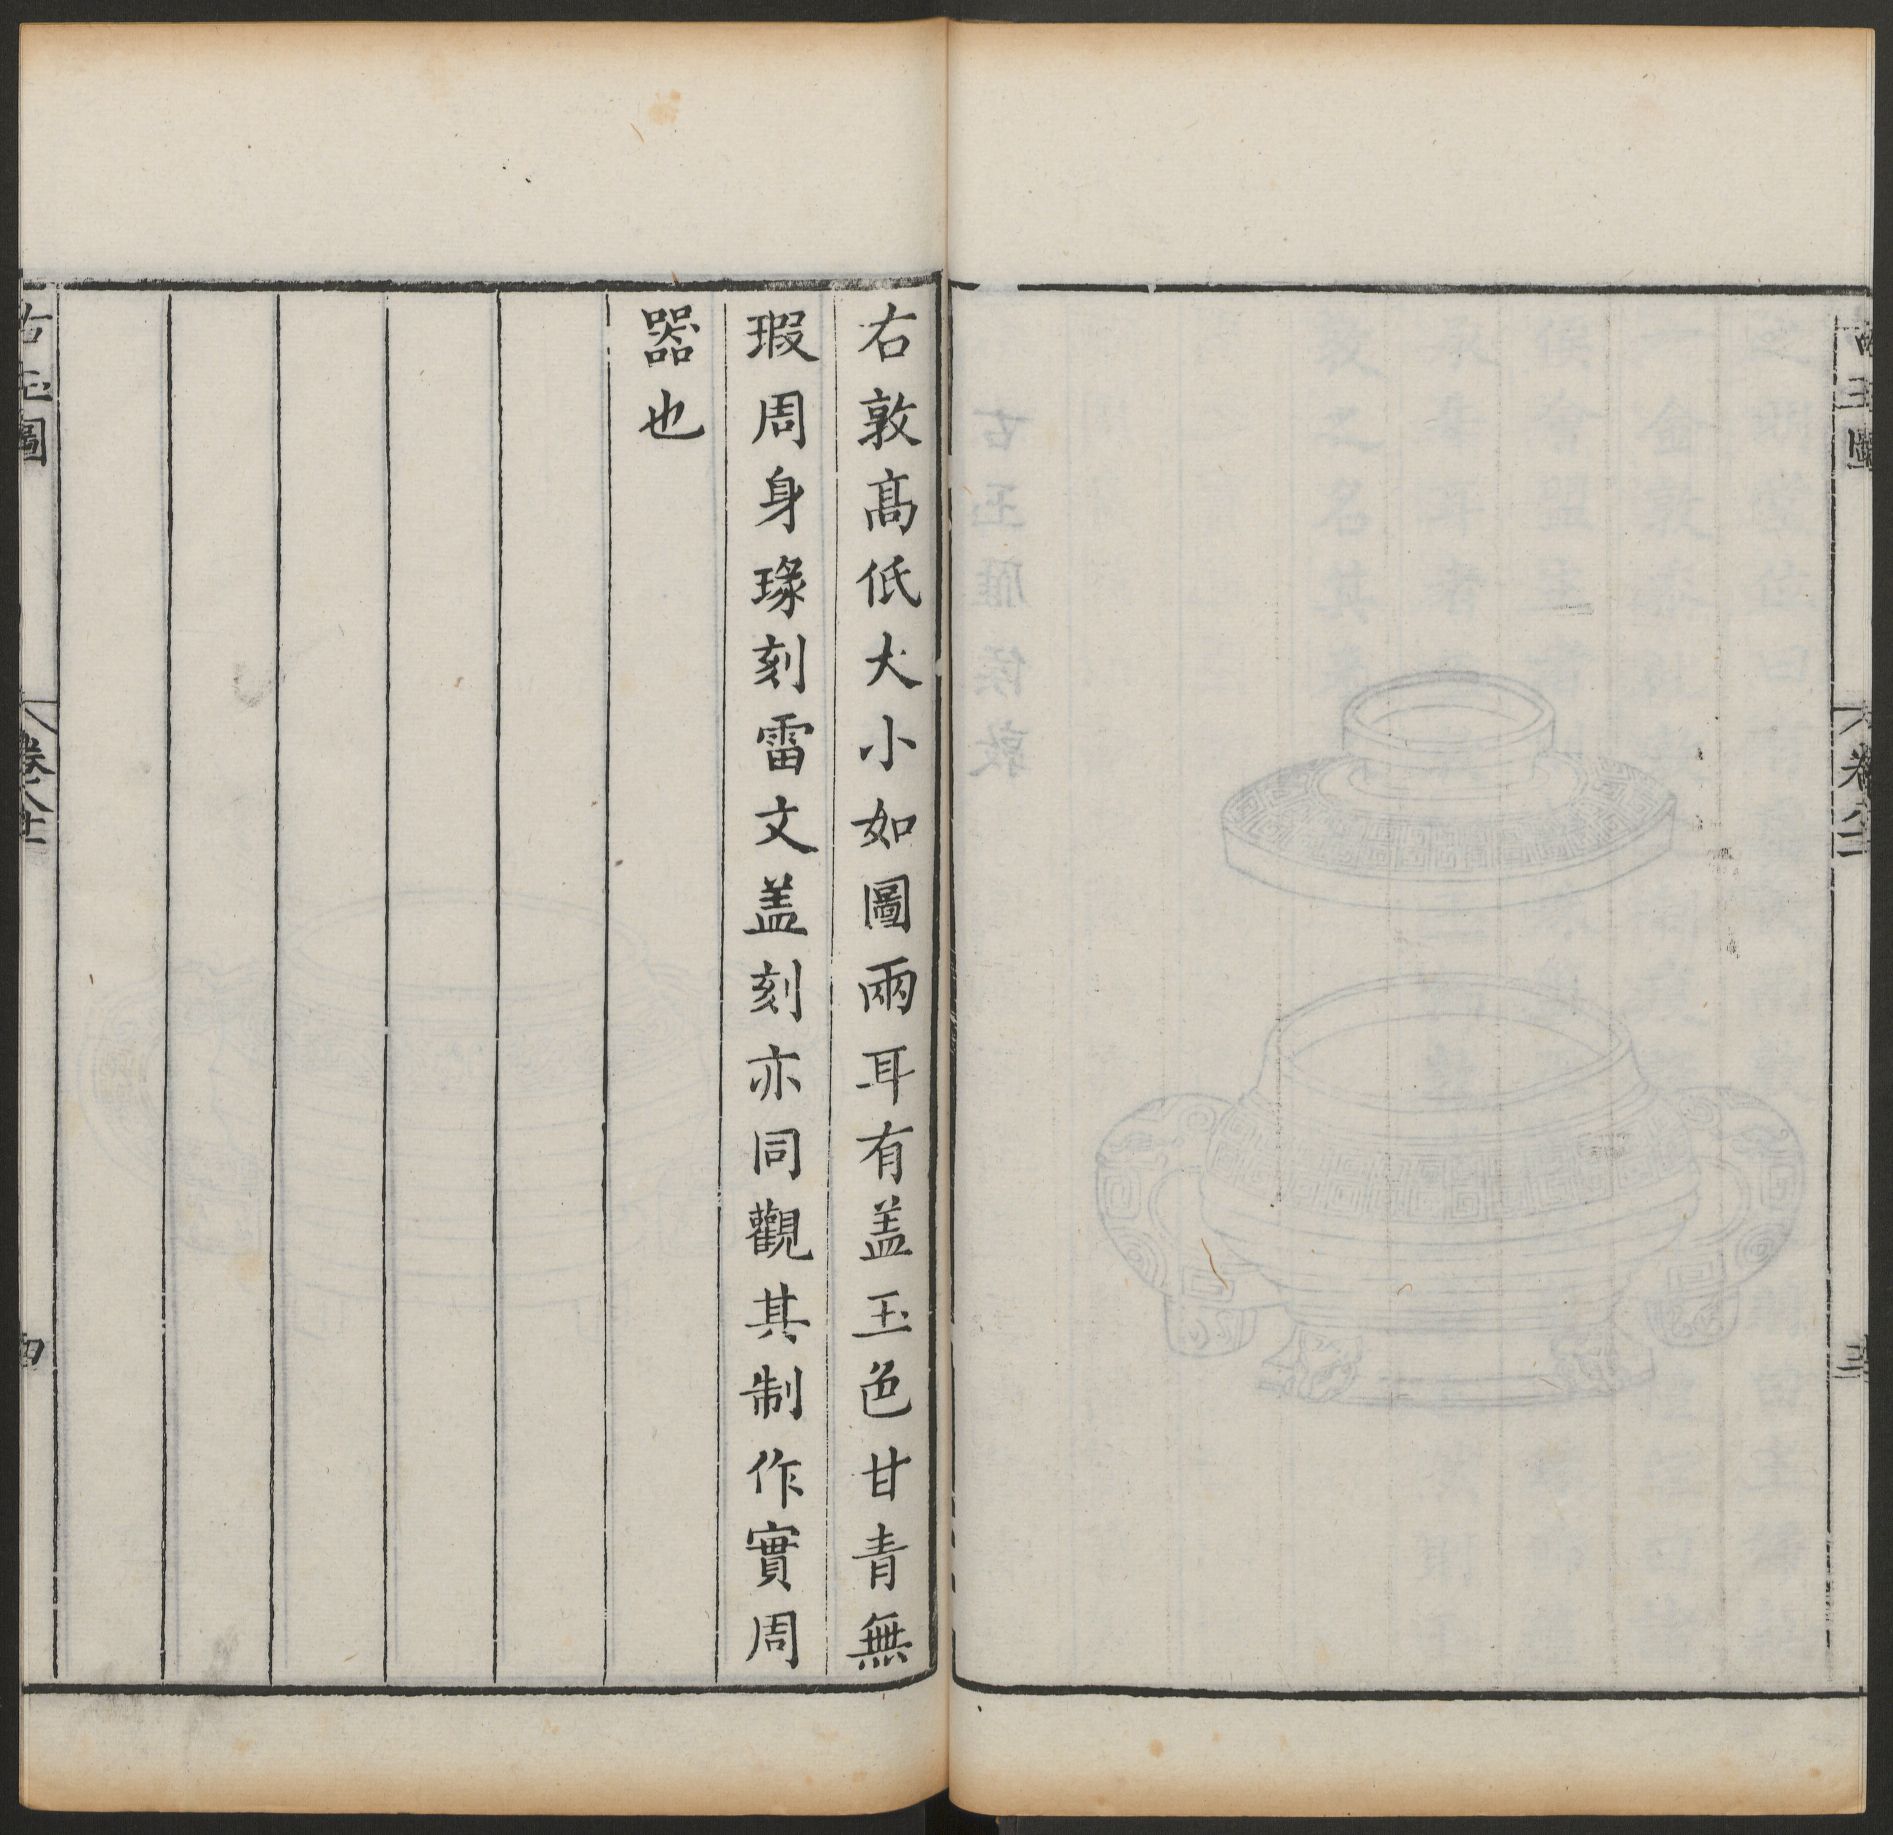 古玉圖
三
右敦髙低大小如圖兩耳有盖玉色甘青無
瑕周身瑑刻雷文盖刻亦同觀其制作實周
器也
古玉圖
四